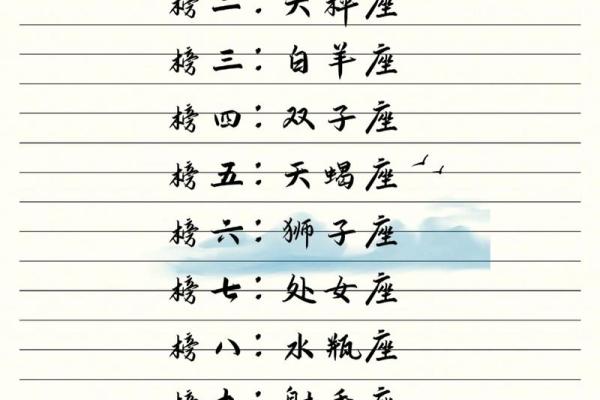 榜二：天秤座
榜三：白羊座
榜四：双子座
榜五：天蝎座
榜六：狮子座
榜七：处女座
榜八：水瓶座